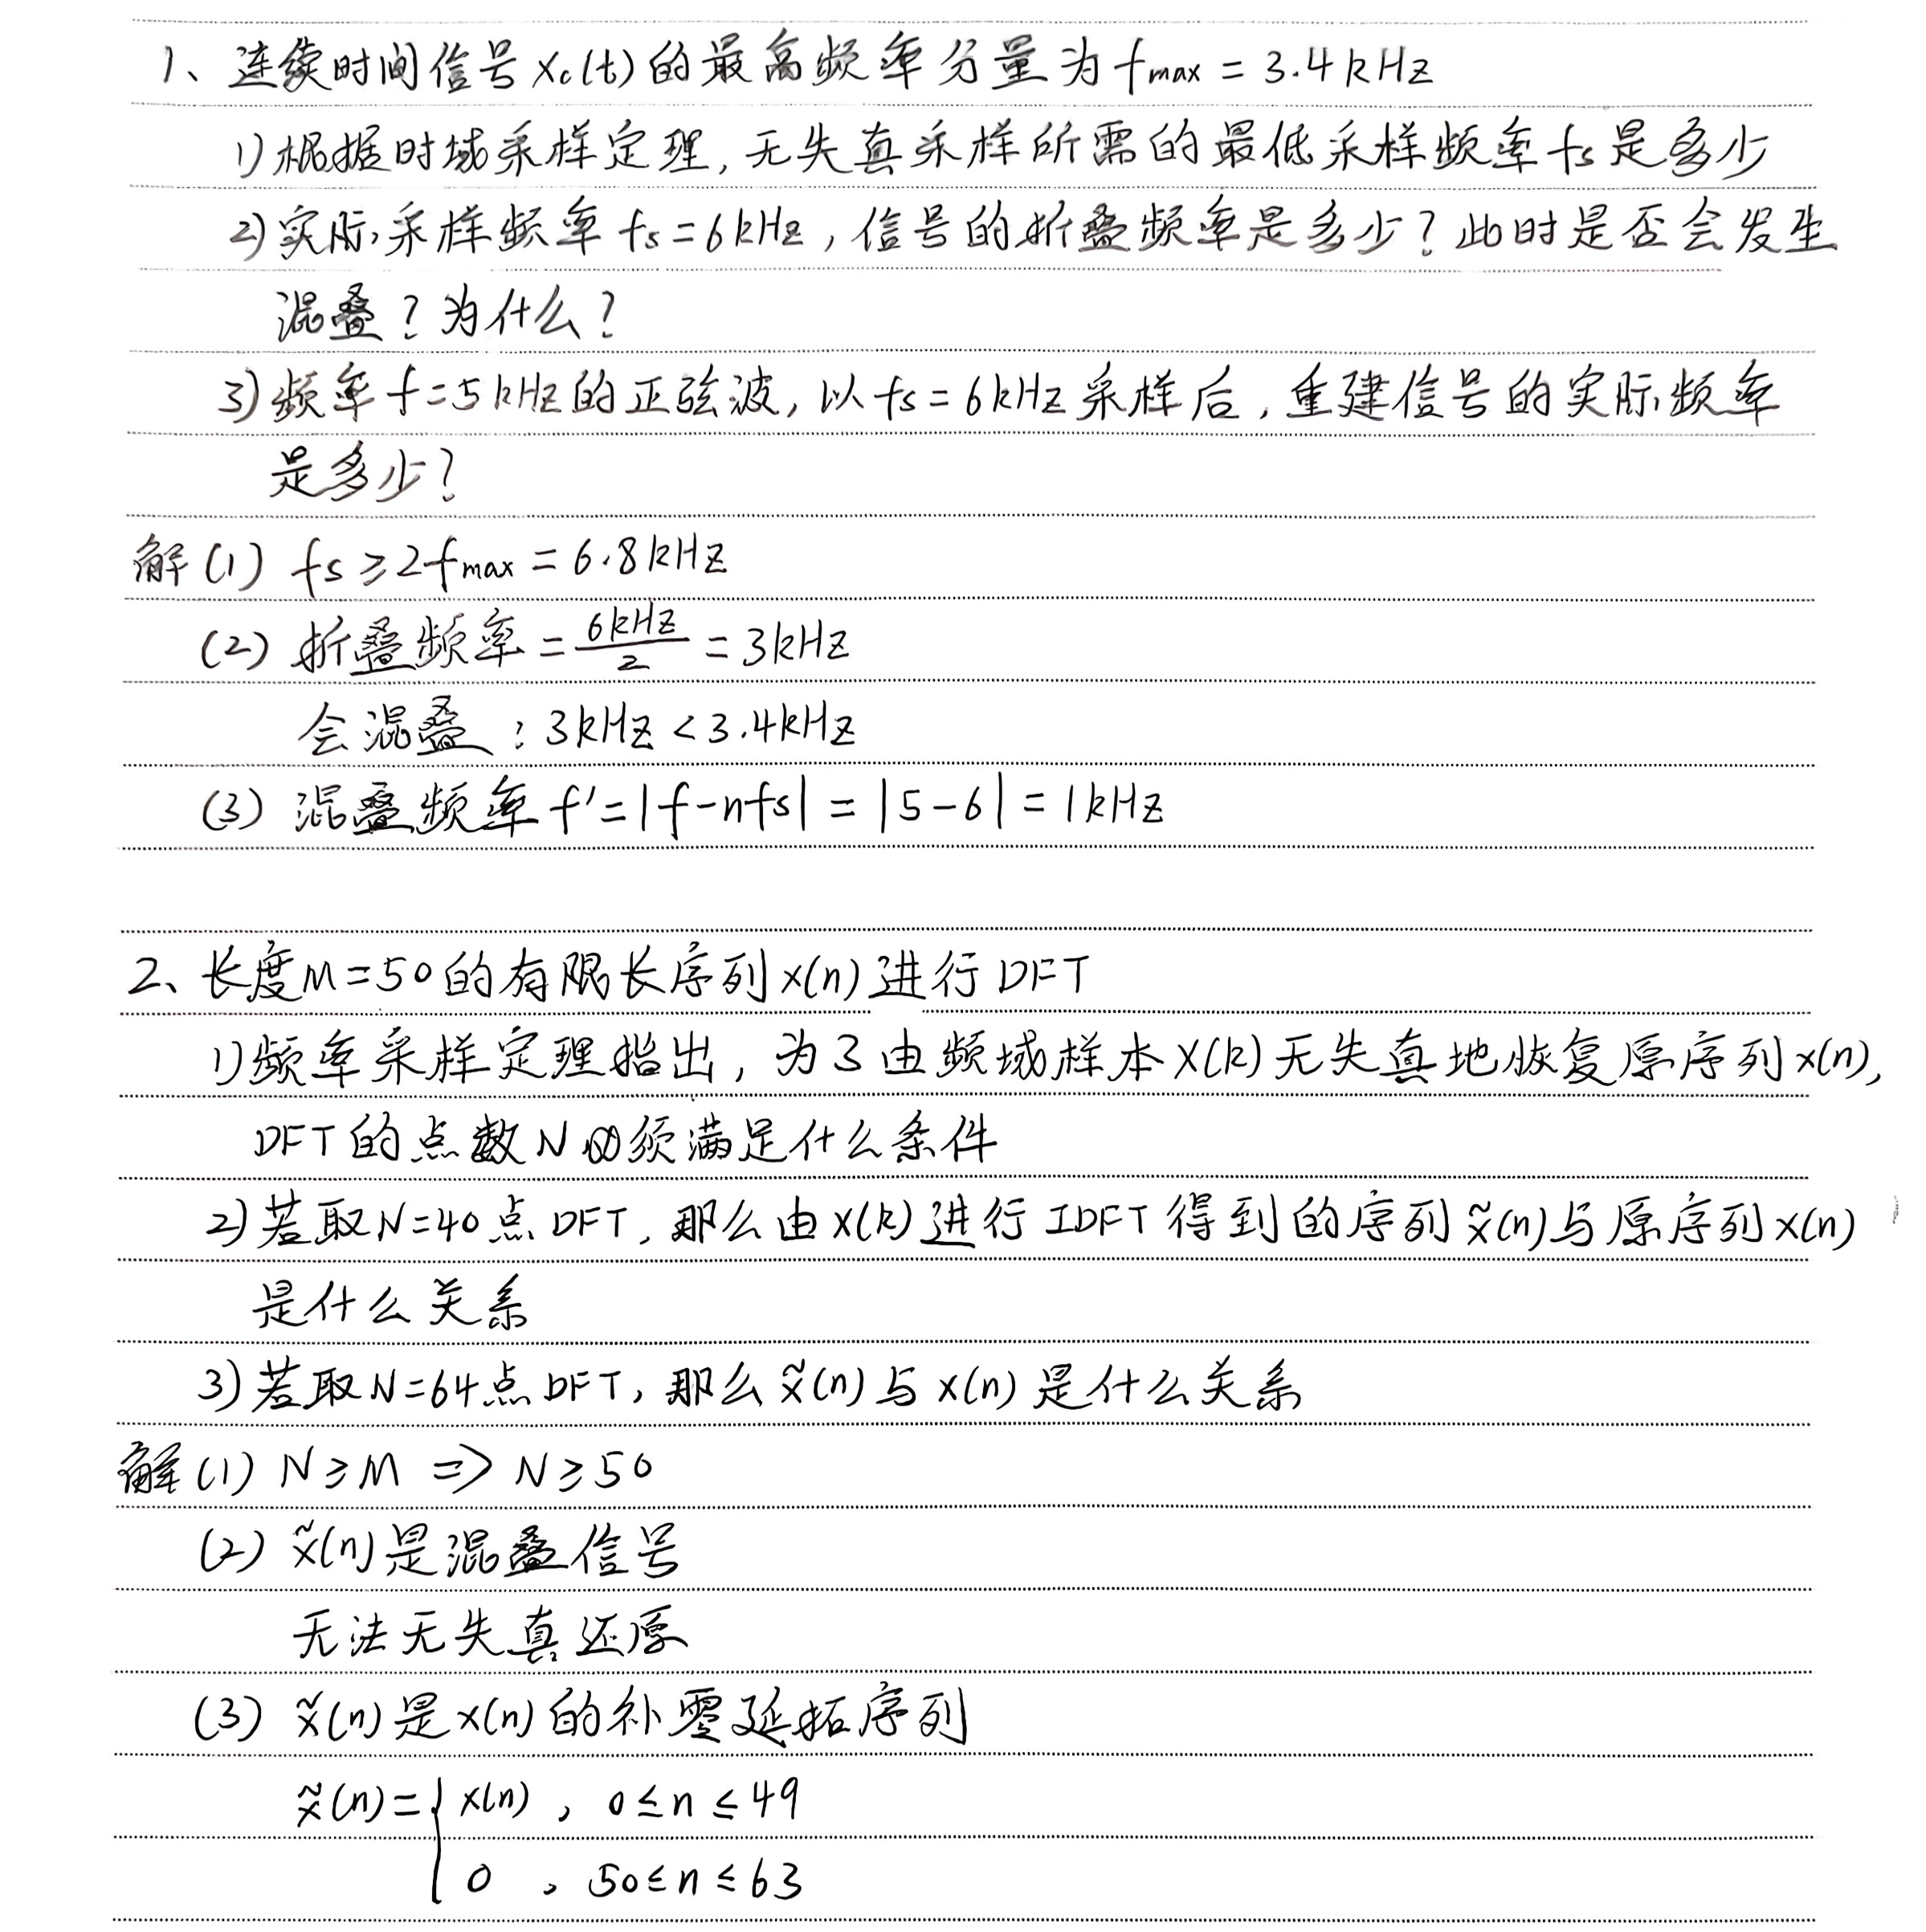 1、连续时间信号 xc(t) 的最高频率分量为 fmax = 3.4kHz
1) 根据时域采样定理, 无失真采样所需的最低采样频率 fs 是多少
2) 实际采样频率 fs = 6kHz, 信号的折叠频率是多少? 此时是否会发生
混叠? 为什么?
3) 频率 f = 5kHz 的正弦波, 以 fs = 6kHz 采样后, 重建信号的实际频率
是多少?
解 (1) fs ≥ 2fmax = 6.8kHz
(2) 折叠频率 = 6kHz/2 = 3kHz
会混叠 : 3kHz < 3.4kHz
(3) 混叠频率 f' = |f - nfs| = |5 - 6| = 1kHz
2、长度M = 50 的有限长序列 x(n) 进行 DFT
1) 频率采样定理指出, 为了由频域样本 X(k) 无失真地恢复原序列 x(n),
DFT 的点数 N 必须满足什么条件
2) 若取 N = 40 点 DFT, 那么由 X(k) 进行 IDFT 得到的序列 x̃(n) 与原序列 x(n)
是什么关系
3) 若取 N = 64 点 DFT, 那么 x̃(n) 与 x(n) 是什么关系
解 (1) N ≥ M ⇒ N ≥ 50
(2) x̃(n) 是混叠信号
无法无失真还原
(3) x̃(n) 是 x(n) 的补零延拓序列
x̃(n) = { x(n) , 0 ≤ n ≤ 49
0 , 50 ≤ n ≤ 63